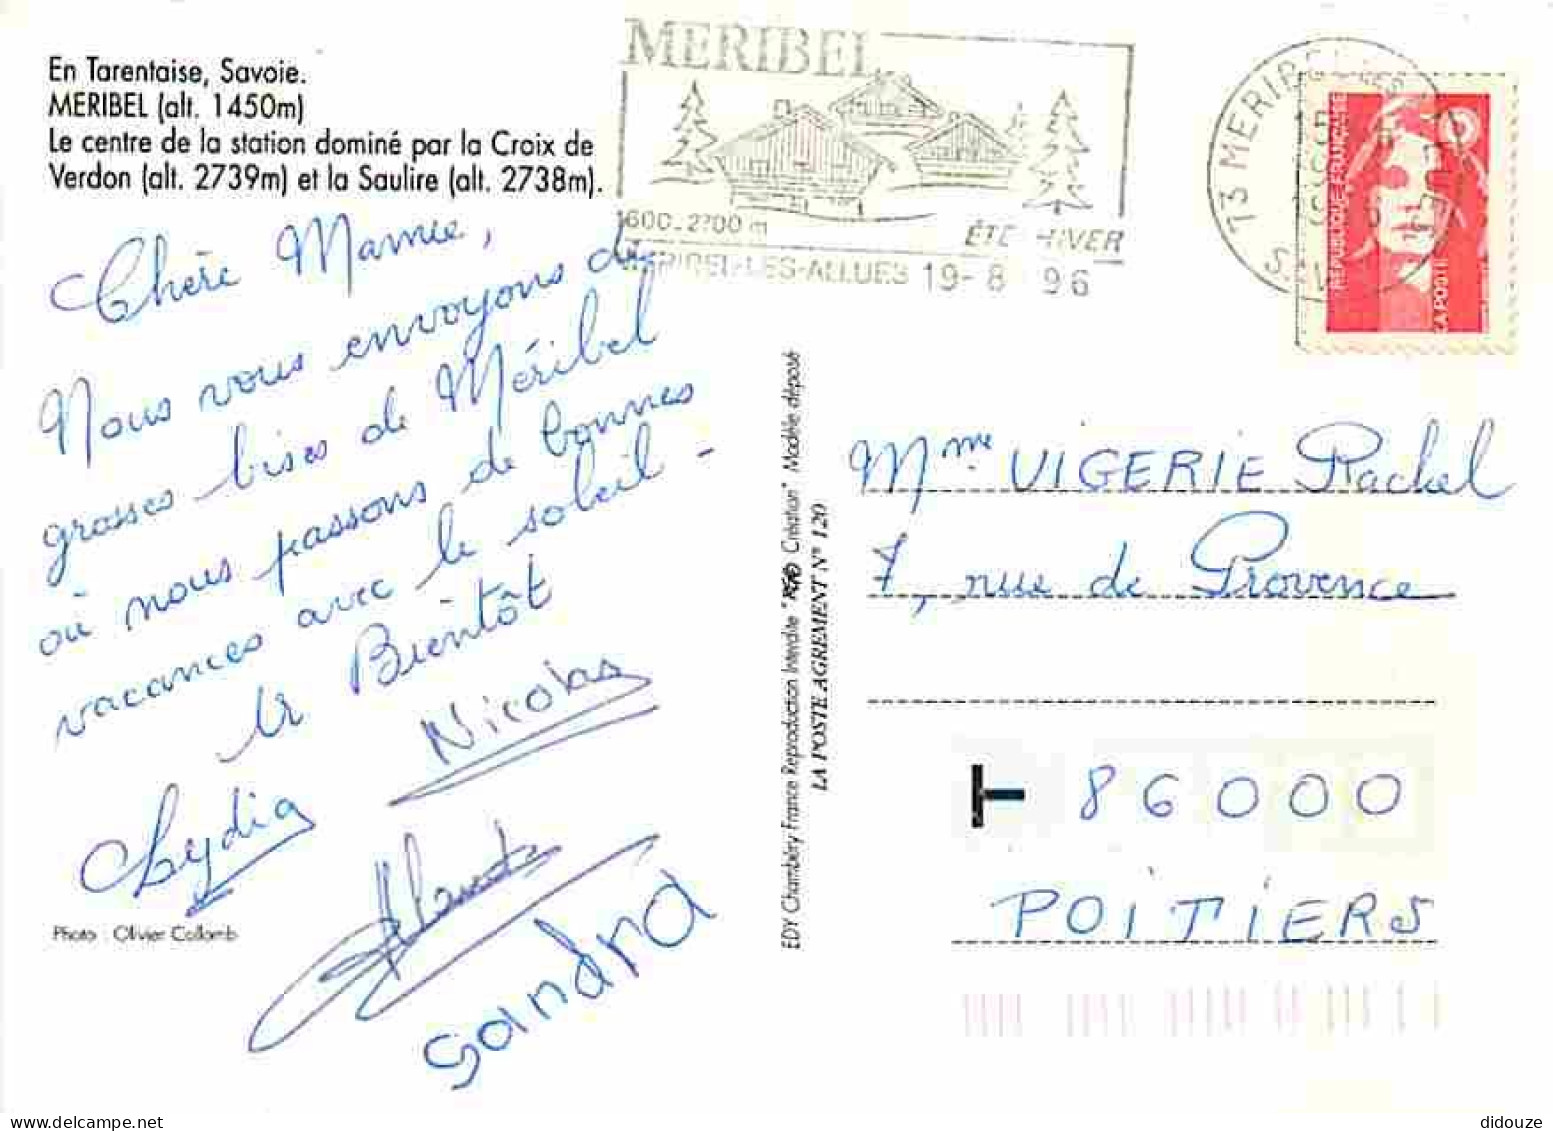 En Tarentaise, Savoie.
MERIBEL (alt. 1450m)
Le centre de la station dominé par la Croix de
Verdon (alt. 2739m) et la Saulire (alt. 2738m).
Chère Mamie,
Nous vous envoyons de
grosses bises de Méribel
où nous passons de bonnes
vacances avec le soleil -
Bientôt
Nicolas
Lydia
Sandra
Photo : Olivier Collomb
EDY Chambéry France Reproduction Interdite Création" Modèle déposé
LA POSTE AGREMENT N° 120
MERIBEL
1600-2700 m
ÉTÉ-HIVER
MERIBEL-LES-ALLUES 19-8 96
73 MERIBEL
REPUBLIQUE FRANÇAISE
LA POSTE
Mme VIGERIE Rachel
7, rue de Provence
86000
POITIERS
didouze